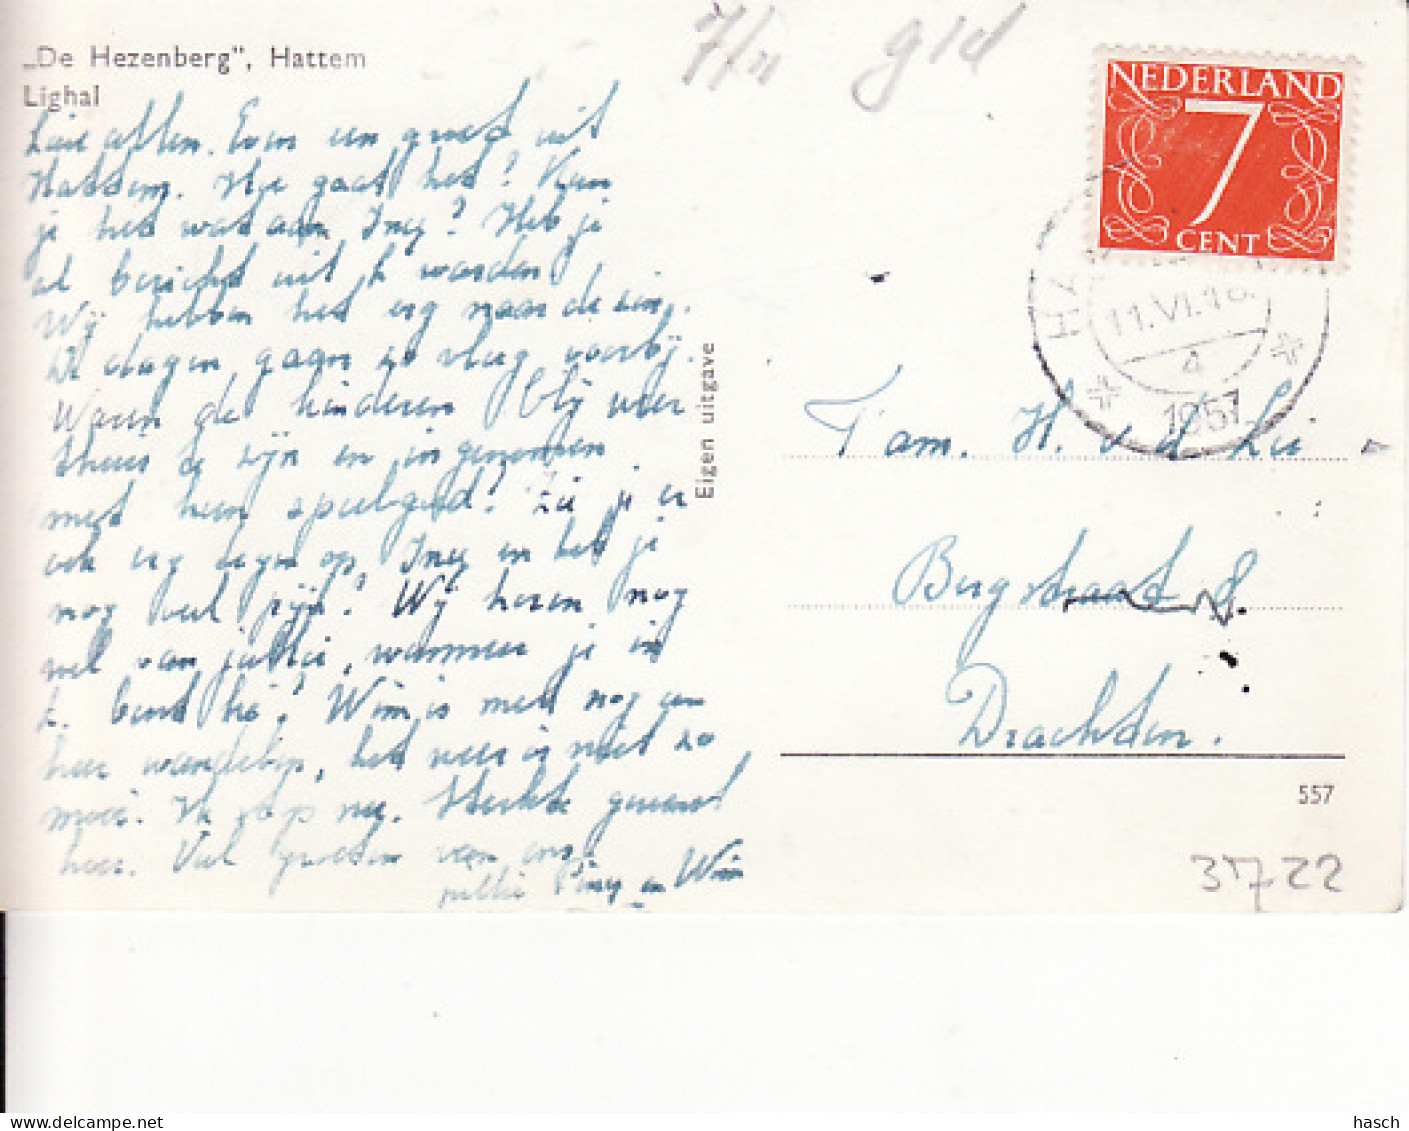 „De Hezenberg”, Hattem
Lighal
Lieve allen. Even een groet uit
Hattem. Hoe gaat het? Kan
je het wat aan Iny? Heb je
al bericht uit L warden
Wij hebben het erg naar de zin.
De dagen gaan zo vlug voorbij.
Waren de kinderen blij weer
thuis te zijn en ingenomen
met hun speelgoed? Zie je er
ook erg tegen op Iny en heb je
nog veel pijn? Wij horen nog
wel van jullie, wanneer je in
L. bent hè? Wim is met nog een
heer wandelen, het weer is niet zo
mooi. Ik nu. Sterkte gewenst
hoor. Veel groeten van ons
jullie Piny en Wim
Eigen uitgave
7/11 gld
NEDERLAND
7
CENT
HA
11.VI.18.
4
1957
Fam. H. v d Lei
Bergstraat 8.
Drachten.
557
3722
hasch